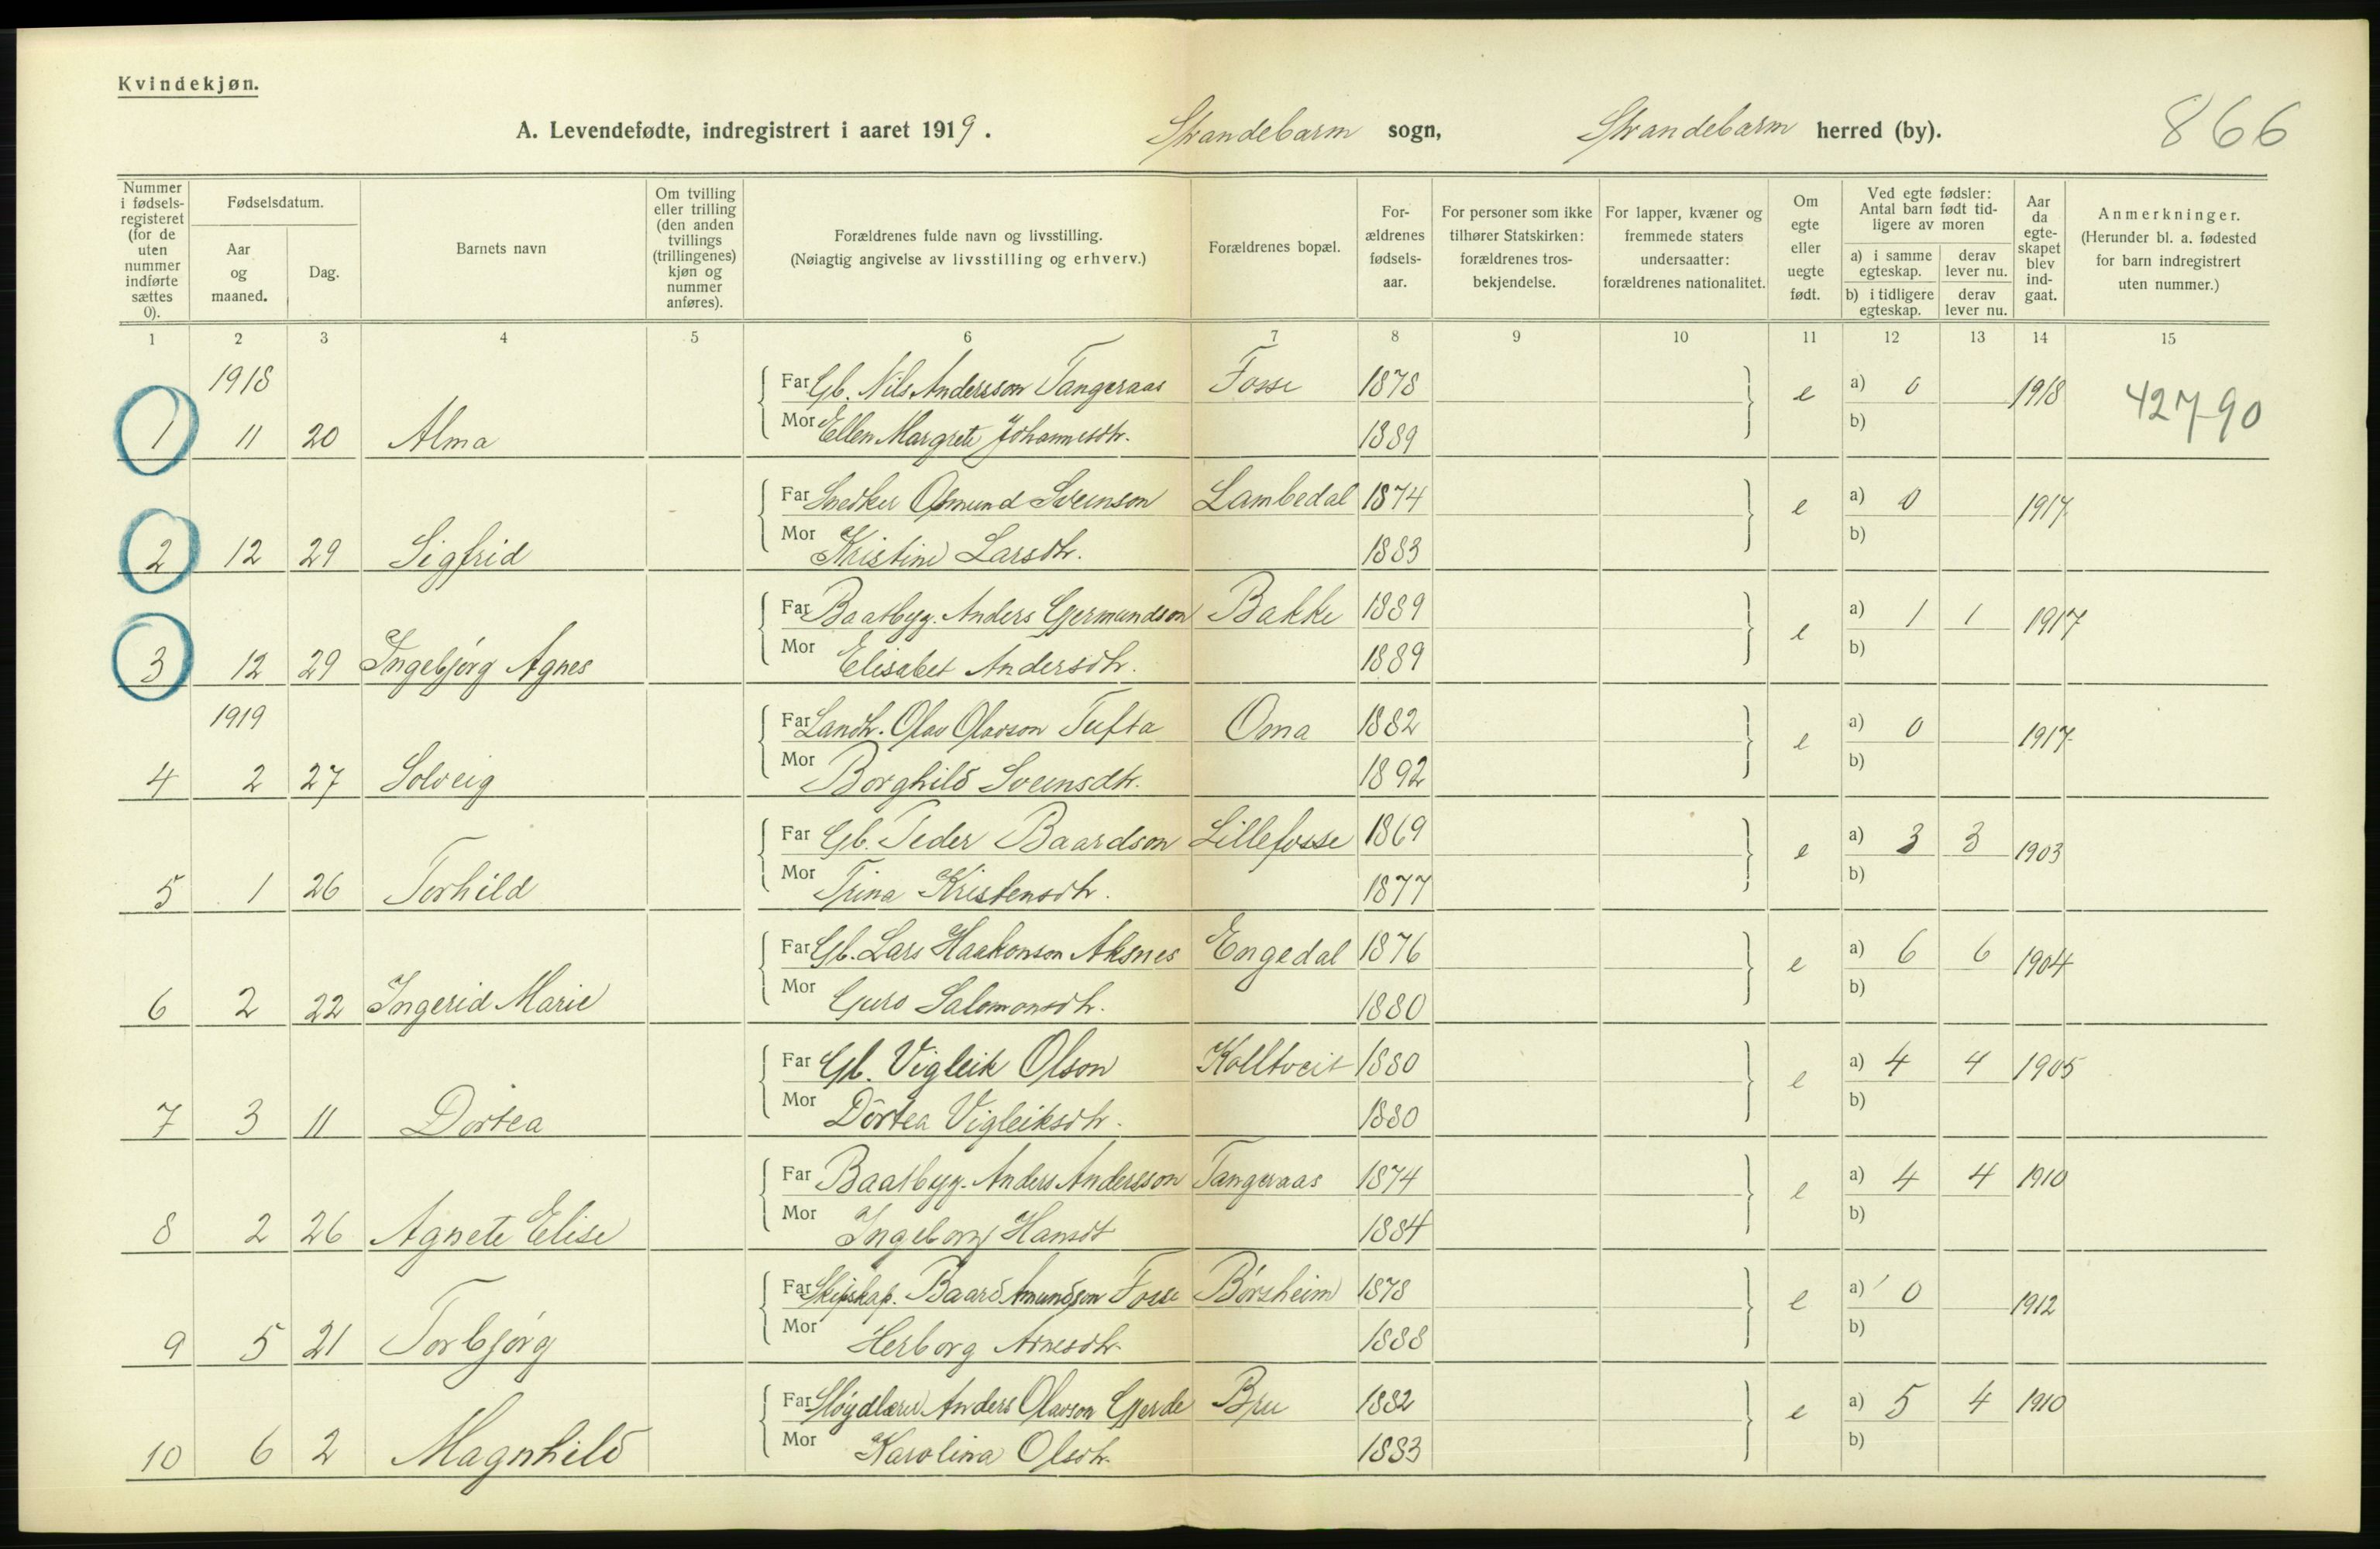 Kvindekjøn.
A. Levendefødte, indregistrert i aaret 1919. Strandebarm sogn, Strandebarm herred (by). 866
Nummer i fødselsregisteret (for de uten nummer indførte sættes 0).
Fødselsdatum.
Aar og maaned.
Dag.
Barnets navn
Om tvilling eller trilling (den anden tvillings (trillingenes) kjøn og nummer anføres).
Forældrenes fulde navn og livsstilling. (Nøiagtig angivelse av livsstilling og erhverv.)
Forældrenes bopæl.
Forældrenes fødselsaar.
For personer som ikke tilhører Statskirken: forældrenes trosbekjendelse.
For lapper, kvæner og fremmede staters undersaatter: forældrenes nationalitet.
Om egte eller uegte født.
Ved egte fødsler: Antal barn født tidligere av moren
a) i samme egteskap. derav lever nu.
b) i tidligere egteskap. derav lever nu.
Aar da egteskapet blev indgaat.
Anmerkninger. (Herunder bl. a. fødested for barn indregistrert uten nummer.)
1 2 3 4 5 6 7 8 9 10 11 12 13 14 15
1918
Far Gb. Nils Andersson Tangeraas Fosse 1878 e a) 0 1918 42790
1 11 20 Alma Mor Ellen Margrete Johannesdtr. 1889 b)
Far Snedker Osmund Sveinson Lambedal 1874 e a) 0 1917
2 12 29 Sigfrid Mor Kristine Larsdtr. 1883 b)
Far Baatbygg. Anders Gjermundson Bakke 1889 e a) 1 1 1917
3 12 29 Ingebjørg Agnes Mor Elisabet Andersdtr. 1889 b)
1919
Far Landh. Olav Olavson Tufta Oma 1882 e a) 0 1917
4 2 27 Solveig Mor Borghild Sveinsdtr. 1892 b)
Far Gb. Peder Baardson Lillefosse 1869 e a) 3 3 1903
5 1 26 Torhild Mor Trina Kristensdtr. 1877 b)
Far Gb. Lars Haakonson Aksnes Engedal 1876 e a) 6 6 1904
6 2 22 Ingerid Marie Mor Guro Salomonsdtr. 1880 b)
Far Gb. Vigleik Olson Kolltveit 1880 e a) 4 4 1905
7 3 11 Dortea Mor Dortea Vigleiksdtr. 1880 b)
Far Baatbygg. Anders Andersson Tangeraas 1874 e a) 4 4 1910
8 2 26 Agnete Elise Mor Ingeborg Hansdt 1884 b)
Far Skipskap. Baard Amundson Fosse Børsheim 1878 e a) 0 1912
9 5 21 Torbjørg Mor Herborg Arnesdtr. 1888 b)
Far Sløydlærer Anders Olavson Gjerde Bru 1882 e a) 5 4 1910
10 6 2 Magnhild Mor Karolina Olsdtr. 1883 b)